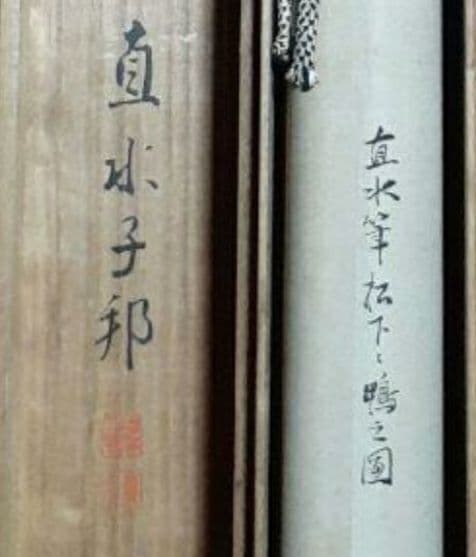 直水筆松下ニ鴨之圖
直水子邦